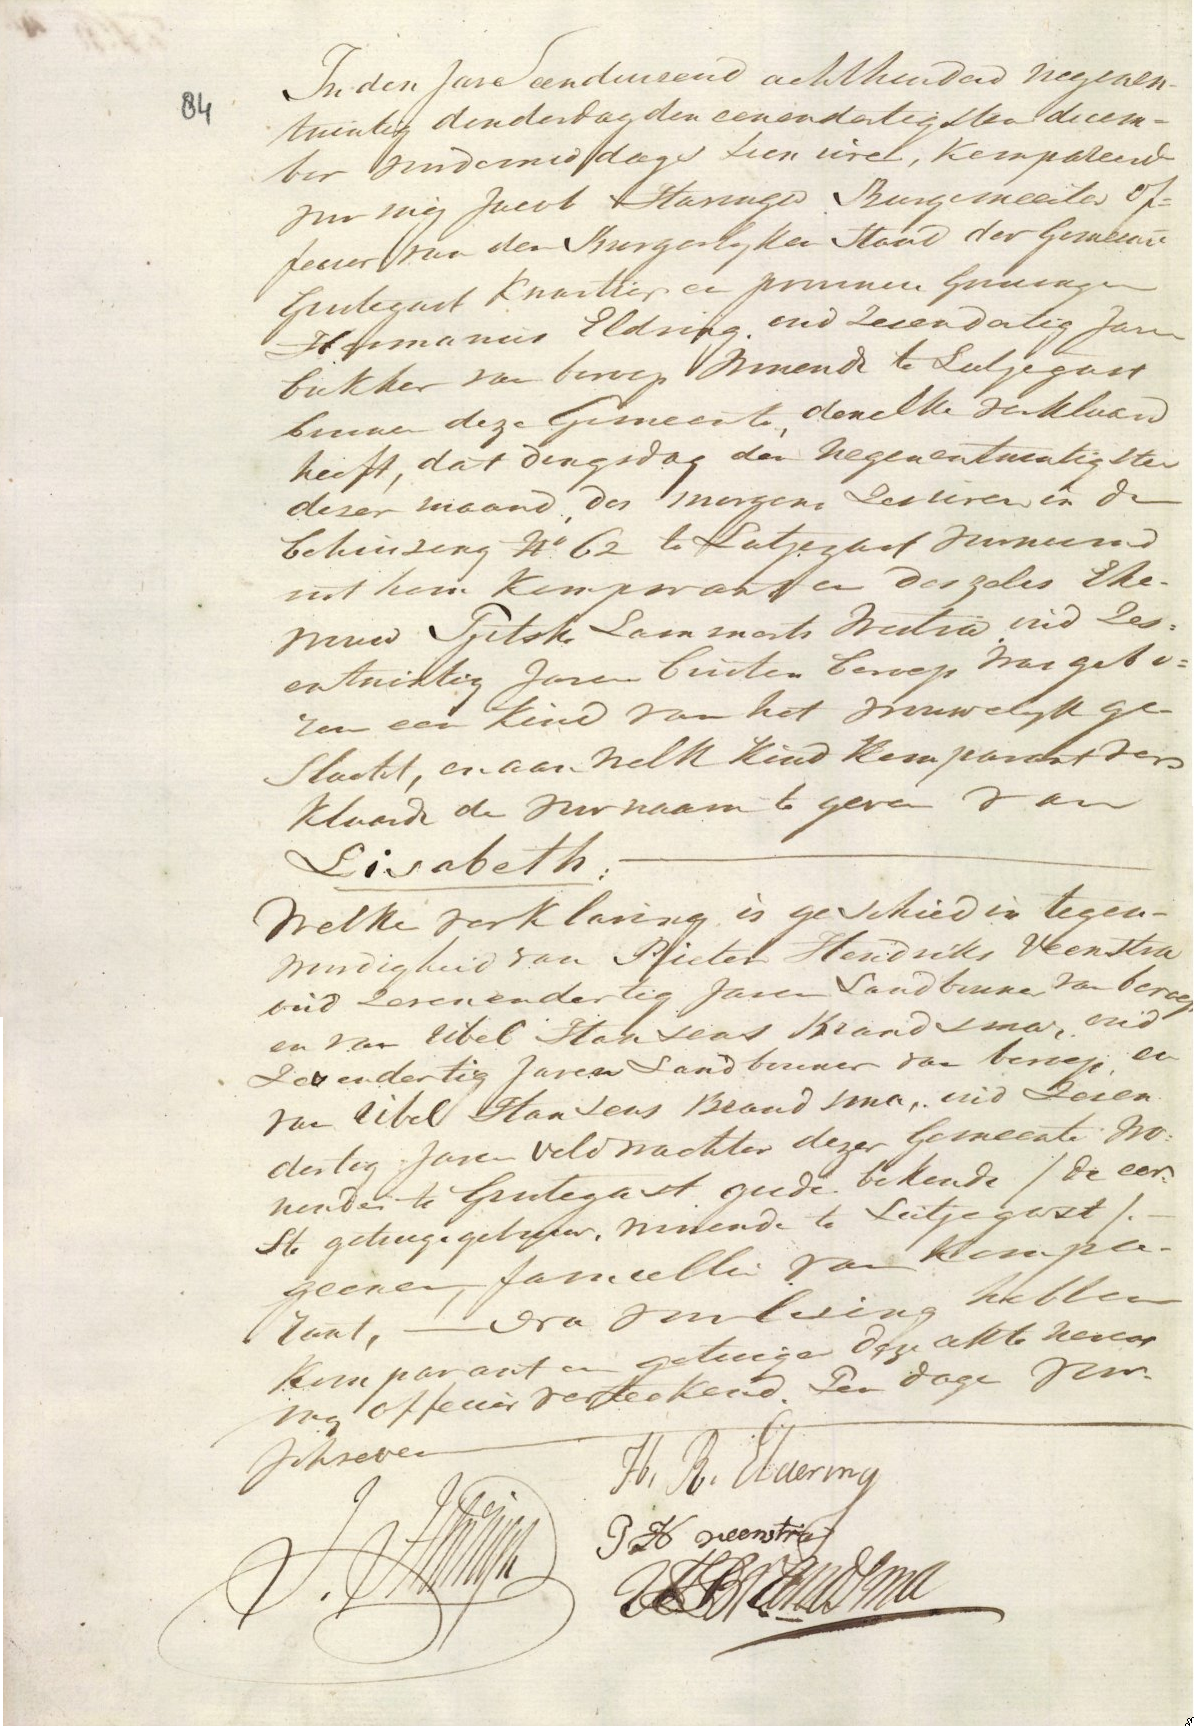 84
In den Jare eenduisend achthonderd negenen-
twintig donderdag den eenendertigsten decem-
ber voordemiddags tien uren, Kompareerde
voor mij Jacob Haringes Burgemeester Of-
ficier van den Burgerlyken Stand der Gemeente
Grootegast Kwartier en provincie Groningen
Hermannus Eldring, oud zesendertig Jaren
bakker van beroep Wonende te Lutjegast
binnen deze Gemeente, dewelke verklaard
heeft, dat dingsdag den Negenentwintigsten
dezer maand, des morgens zes uren in de
behuizeng No 62 te Lutjegast voornoemd
uit hem Komparant en deszelvs Ehe-
vrouw Tjitske Lammerts Westra oud zes=
entwintig Jaren buiten beroep was gebo=
ren een Kind van het vrouwelyk ge-
slacht, en aan welk Kind Komparant ver=
klaarde de voornaam te geven van
Lisabeth:
Welke verklaring is geschied in tegen-
woordigheid van Pieter Hendriks Veenstra
oud zevenendertig Jaren Landbouwer van beroep
en van Uibel Hansens Brandsma, oud
zevendertig Jaren Landbouwer van beroep, en
van Uibel Hansens Brandsma, oud zeven
dertig Jaren veldwachter dezer Gemeente Wo=
nende te Grootegast goede bekende / de eer=
ste getuige gebuur, wonende te Lutjegast /. —
geenen familie van Kompa-
rant, — Dra voorlesing hebben
Komparant en getuigen deze akte nevens
mij officier verteekend. Ten dage voor-
schreven
H. R. Eldering
P H veenstra
J. Haringes
U H Brandsma